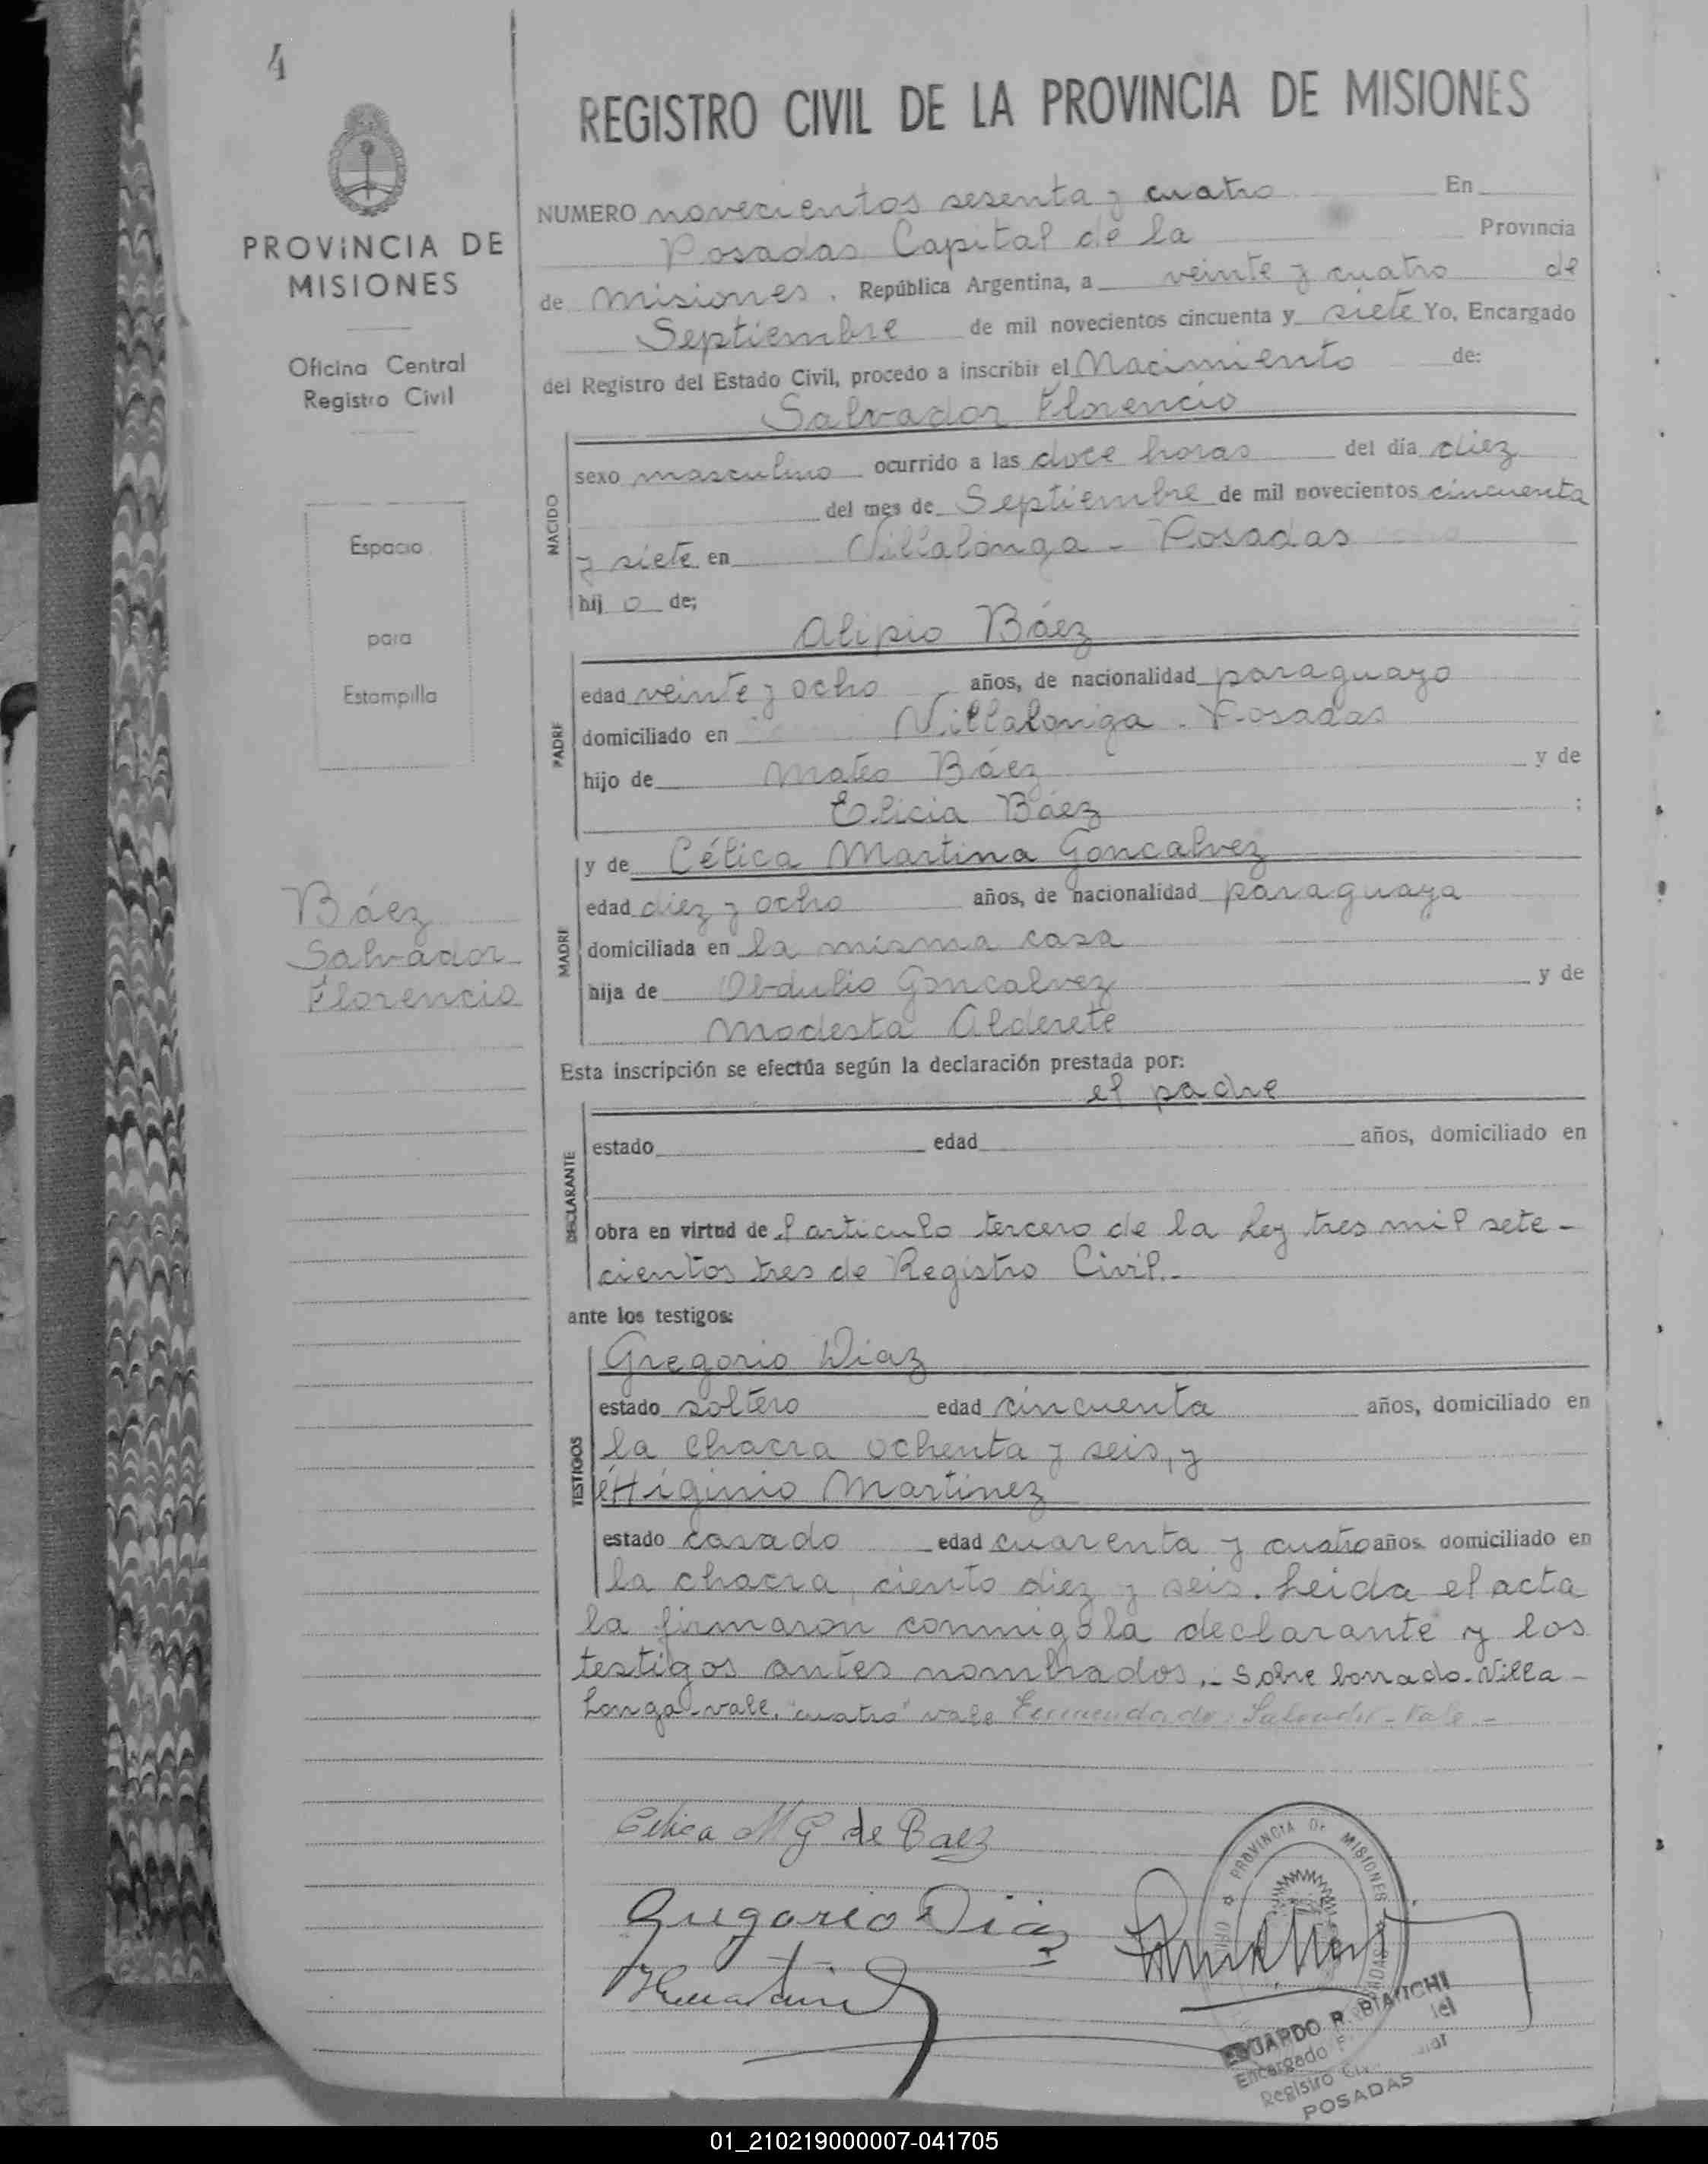 4
PROVINCIA DE
MISIONES
Oficina Central
Registro Civil
Espacio
para
Estampilla
Báez
Salvador
Florencio
REGISTRO CIVIL DE LA PROVINCIA DE MISIONES
NUMERO novecientos sesenta y cuatro En
Posadas Capital de la Provincia
de Misiones. República Argentina, a veinte y cuatro de
Septiembre de mil novecientos cincuenta y siete Yo, Encargado
del Registro del Estado Civil, procedo a inscribir el Nacimiento de:
Salvador Florencio
NACIDO
sexo masculino ocurrido a las doce horas del día diez
del mes de Septiembre de mil novecientos cincuenta
y siete en Villalonga - Posadas
hij o de;
Alipio Báez
PADRE
edad veinte y ocho años, de nacionalidad paraguayo
domiciliado en Villalonga - Posadas
hijo de Mateo Báez y de
Elicia Báez ;
y de Célica Martina Goncalvez
MADRE
edad diez y ocho años, de nacionalidad paraguaya
domiciliada en la misma casa
hija de Obdulio Goncalvez y de
Modesta Alderete
Esta inscripción se efectúa según la declaración prestada por:
el padre
DECLARANTE
estado edad años, domiciliado en
obra en virtud de l articulo tercero de la Ley tres mil sete-
cientos tres de Registro Civil.-
ante los testigos:
TESTIGOS
Gregorio Diaz
estado soltero edad cincuenta años, domiciliado en
la chacra ochenta y seis, y
é Higinio Martinez
estado casado edad cuarenta y cuatro años, domiciliado en
la chacra, ciento diez y seis. Leida el acta
la firmaron conmigo la declarante y los
testigos antes nombrados.- Sobre borrado-Villa-
longa-vale. "cuatro" vale Enmendado: Salvador-Vale-
Celica M G de Baez
Gregorio Diaz
HMartinez
PROVINCIA DE MISIONES
EDUARDO R. BIANCHI
Encargado
Registro
POSADAS
01_210219000007-041705